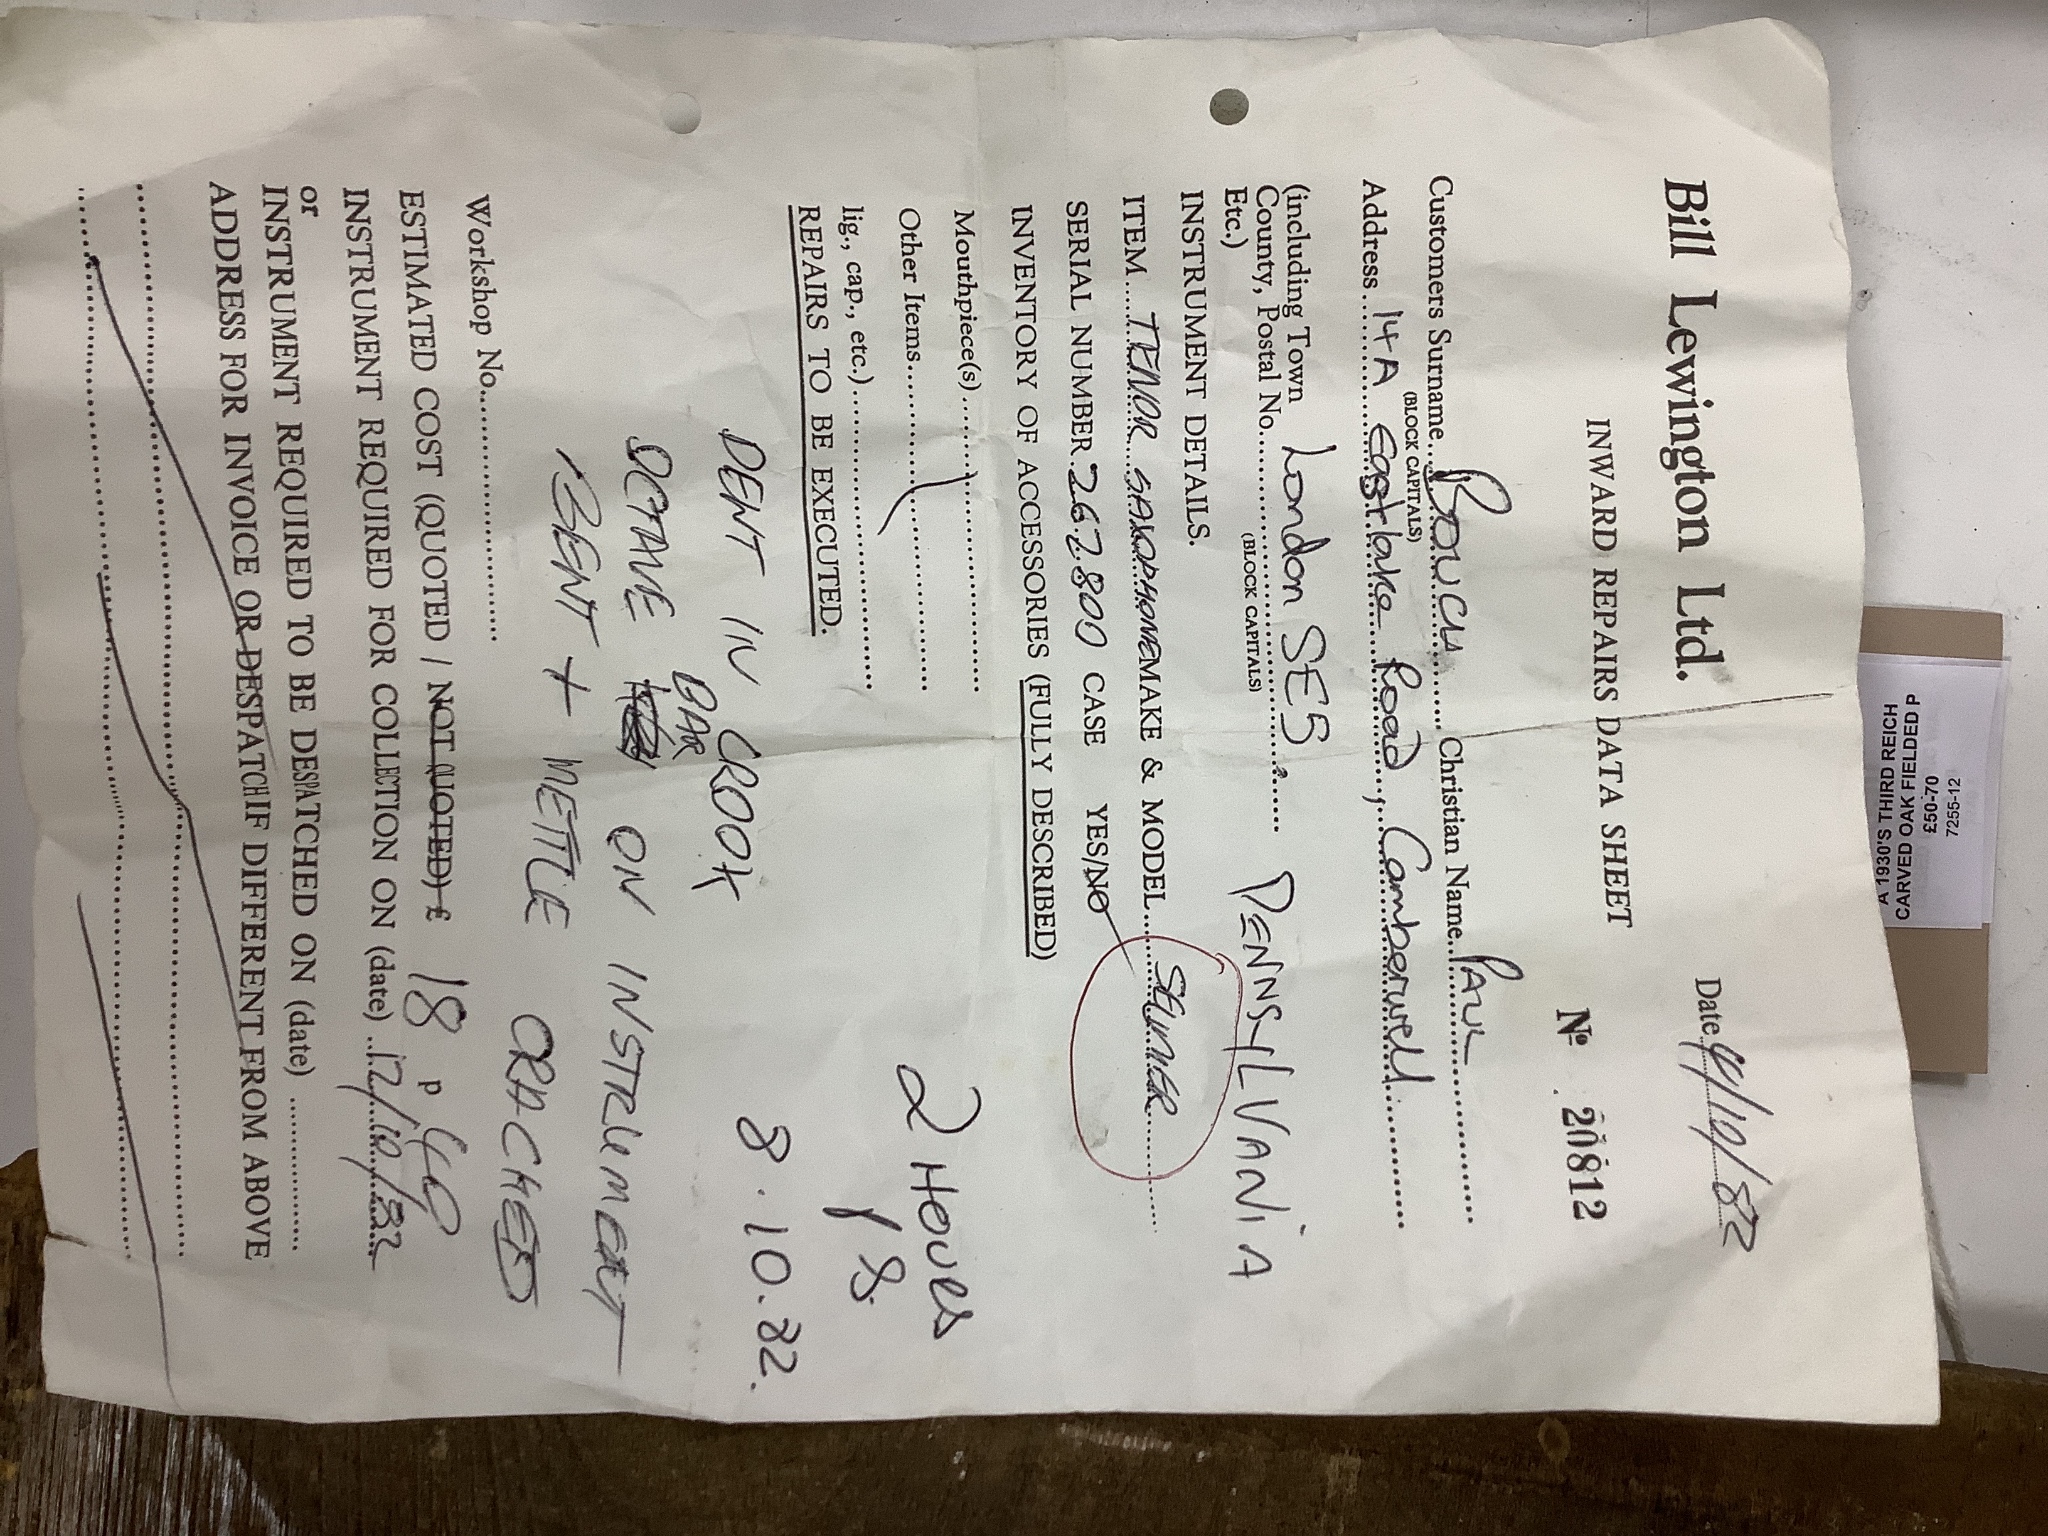 Bill Lewington Ltd.
Date 4/10/82
INWARD REPAIRS DATA SHEET
No 20812
Customers Surname Christian Name PAUL
(BLOCK CAPITALS)
Address 14A Eastlake Road, Camberwell
(including Town London SE5
County, Postal No.
Etc.)
(BLOCK CAPITALS)
PENNSYLVANIA
INSTRUMENT DETAILS.
ITEM TENOR SAXOPHONE MAKE & MODEL SELMER
SERIAL NUMBER 262800 CASE YES/NO
INVENTORY OF ACCESSORIES (FULLY DESCRIBED)
Mouthpiece(s)
Other Items
2 HOURS
lig., cap., etc.)
REPAIRS TO BE EXECUTED.
DENT IN CROOK
8.10.82.
BAR
OCTAVE ON INSTRUMENT
BENT + METTLE CRACKED
Workshop No.
ESTIMATED COST (QUOTED / NOT QUOTED) £ 18 p
INSTRUMENT REQUIRED FOR COLLETION ON (date) 12/10/82
or
INSTRUMENT REQUIRED TO BE DESPATCHED ON (date)
ADDRESS FOR INVOICE OR DESPATCH IF DIFFERENT FROM ABOVE
A 1930'S THIRD REICH
CARVED OAK FIELDED P
£50-70
7255-12